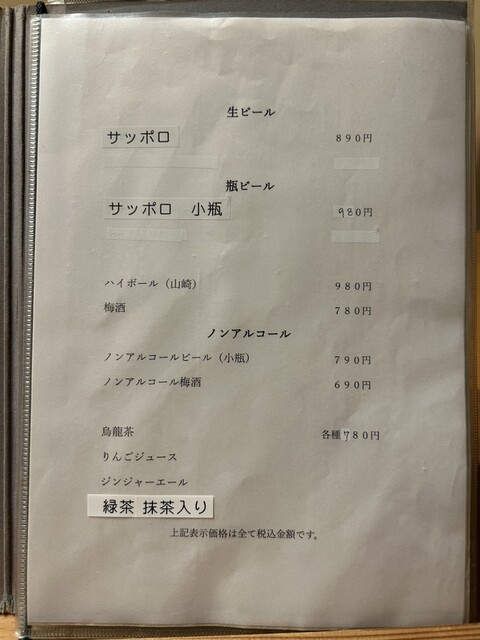 生ビール
サッポロ 890円
瓶ビール
サッポロ 小瓶 980円
ハイボール（山崎） 980円
梅酒 780円
ノンアルコール
ノンアルコールビール（小瓶） 790円
ノンアルコール梅酒 690円
烏龍茶 各種780円
りんごジュース
ジンジャーエール
緑茶 抹茶入り
上記表示価格は全て税込金額です。